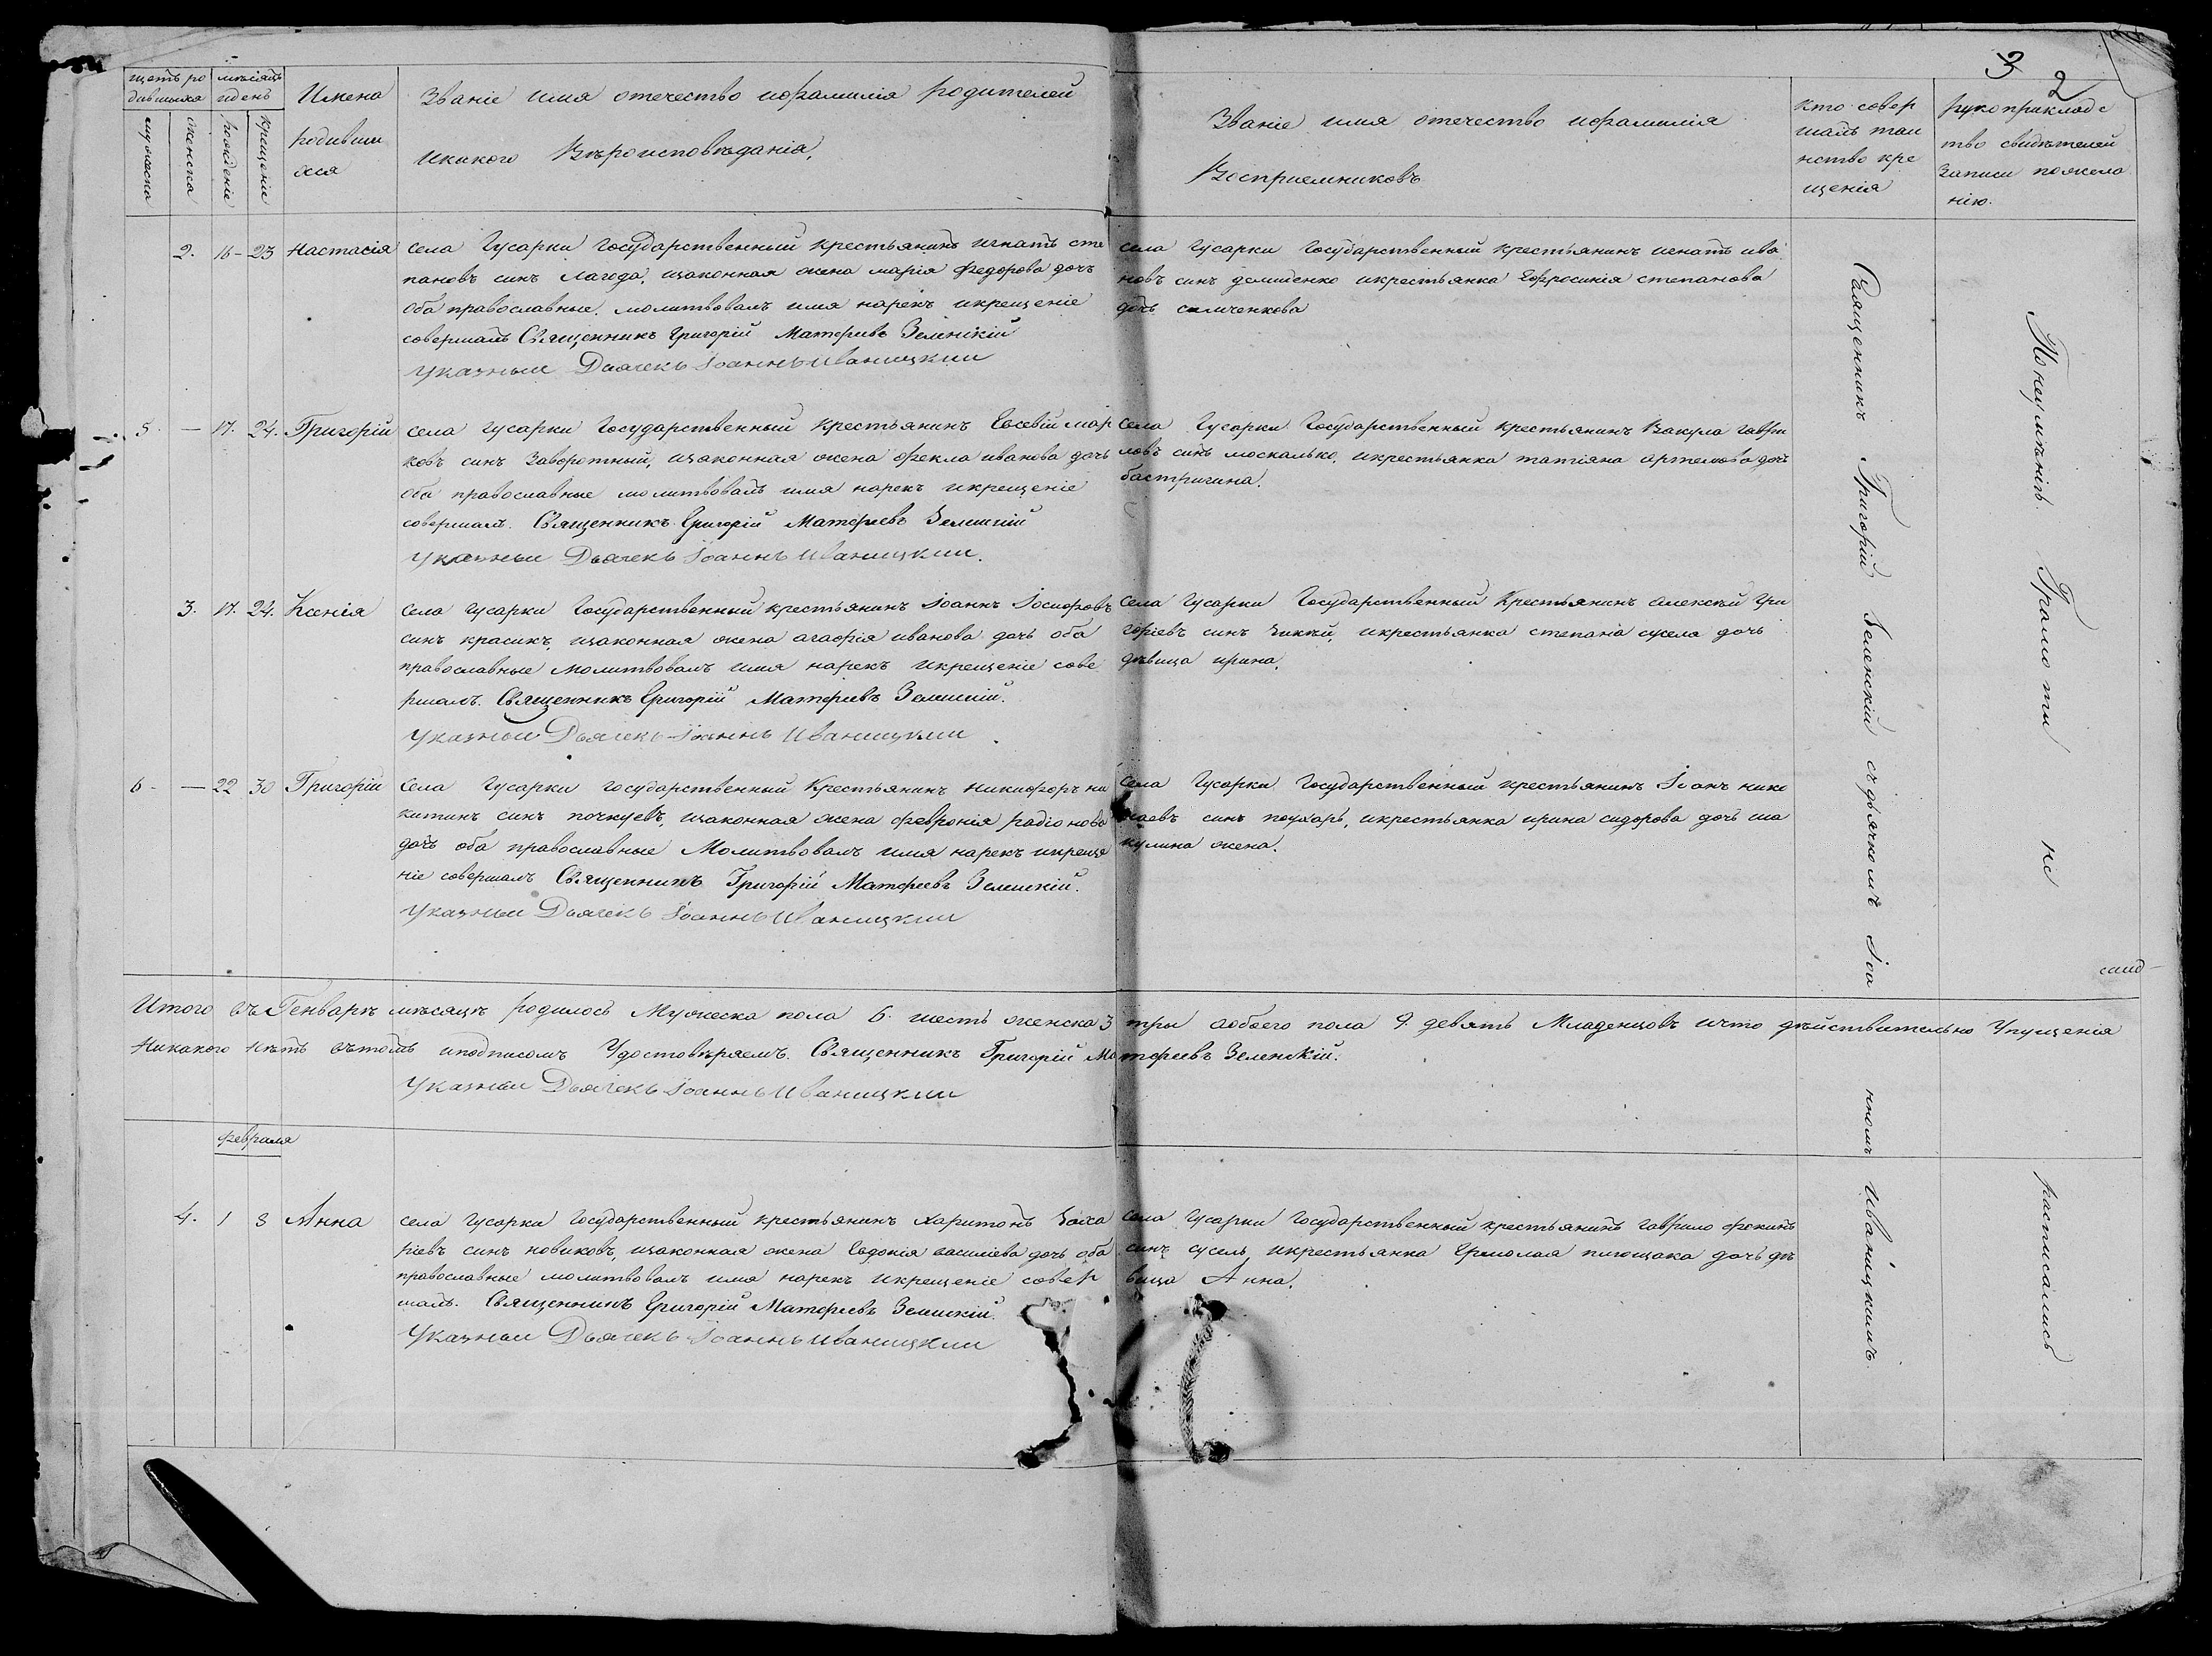 3
2
щетъ ро мѣсяцъ
дившихся иденъ
мужеска
женска
рожденіе
крещеніе
Имена
родивши
хся
Званіе имя отечество ифамилія родителей
икикого Вѣроисповѣданія.
Званіе имя отечество ифамилія
Восприемниковъ
кто совер
шалъ таи
нство кре
щенія
рукоприкладс
тво свидѣтелей
записи пожела
нію.
2. 16 - 23 Настасія
села Гусарки Государственный крестьянинъ игнатъ сте
пановъ синъ лагода, изаконная жена марія федорова дочь
оба православные. молитвовалъ имя нарекъ икрещеніе
совершалъ Священникъ Григорій Матфиевъ Зеленскій
Указныи Дьячекъ Іоаннъ Иваницкии
села Гусарки Государственный крестьянинъ игнатъ ива
новъ синъ демиденко икрестьянка Ефросинія степанова
дочь
5. — 17. 24. Григорій
села гусарки Государственный крестьянинъ Евсевій мар
ковъ синъ Заворотный, изаконная жена фекла иванова дочь
оба православные молитвовалъ имя нарекъ икрещеніе
совершалъ. Священникъ Григорій Матфиевъ Зеленскій
Указныи Дьячекъ Іоаннъ Иваницкии.
Села Гусарки Государственный крестьянинъ Вакула гаври
ловъ синъ москалько, икрестьянка татіяна артемова дочь
бастригина.
3. 17. 24. Ксенія
села гусарки Государственный крестьянинъ Іоаннъ Іосифовъ
синъ красикъ, изаконная жена агафія иванова дочь оба
православные молитвовалъ имя нарекъ икрещеніе сове
ршалъ. Священникъ Григорій Матфиевъ Зеленскій.
Указныи Дьячекъ Іоаннъ Иваницкии
Села Гусарки Государственный Крестьянинъ алексѣй Гри
горіевъ синъ Зикѣй, икрестьянка степана сусела дочь
дѣвица ирина.
6 — — 22 30 Григорій
Села Гусарки Государственный Крестьянинъ никифоръ ни
китинъ синъ почкуевъ, изаконная жена февронія радіонова
дочь оба православные Молитвовалъ имя нарекъ икреще
ніе совершалъ Священникъ Григорій Матфеевъ Зеленскій.
Указныи Дьячекъ Іоаннъ Иваницкии
Села Гусарки Государственныи крестьянинъ Іоанъ нико
лаевъ синъ поухарь, икрестьянка ирина сидорова дочь ша
кулина жена.
Итого въ Генварѣ мѣсяцѣ родилось Мужеска пола 6. шесть женска 3 три аобоего пола 9. девять Младенцовъ ичто дѣйствительно Упущенія
Никакого нѣтъ вътомъ иподписомъ Удостовѣряемъ. Священникъ Григорій Матфеевъ Зеленскій.
Указныи Дьячекъ Іоаннъ Иваницкии
февраля
4. 1 3 Анна
села гусарки Государственный крестьянинъ Харитонъ Заха
ріевъ синъ новиковъ, изаконная жена Евдокія василіева дочь оба
православные молитвовалъ имя нарекъ икрещеніе совер
шалъ. Священникъ Григорій Матфиевъ Зеленскій.
Указныи Дьячекъ Іоаннъ Иваницкии
Села Гусарки Государственный крестьянинъ гаврило фокинъ
синъ сусель икрестьянка Ермолая дочь дѣ
вица Анна.
Священникъ Григорій Зеленскій съдьячкомъ Іоа
нномъ Иваницкимъ.
Понеумѣнію Грамоти не
распысались